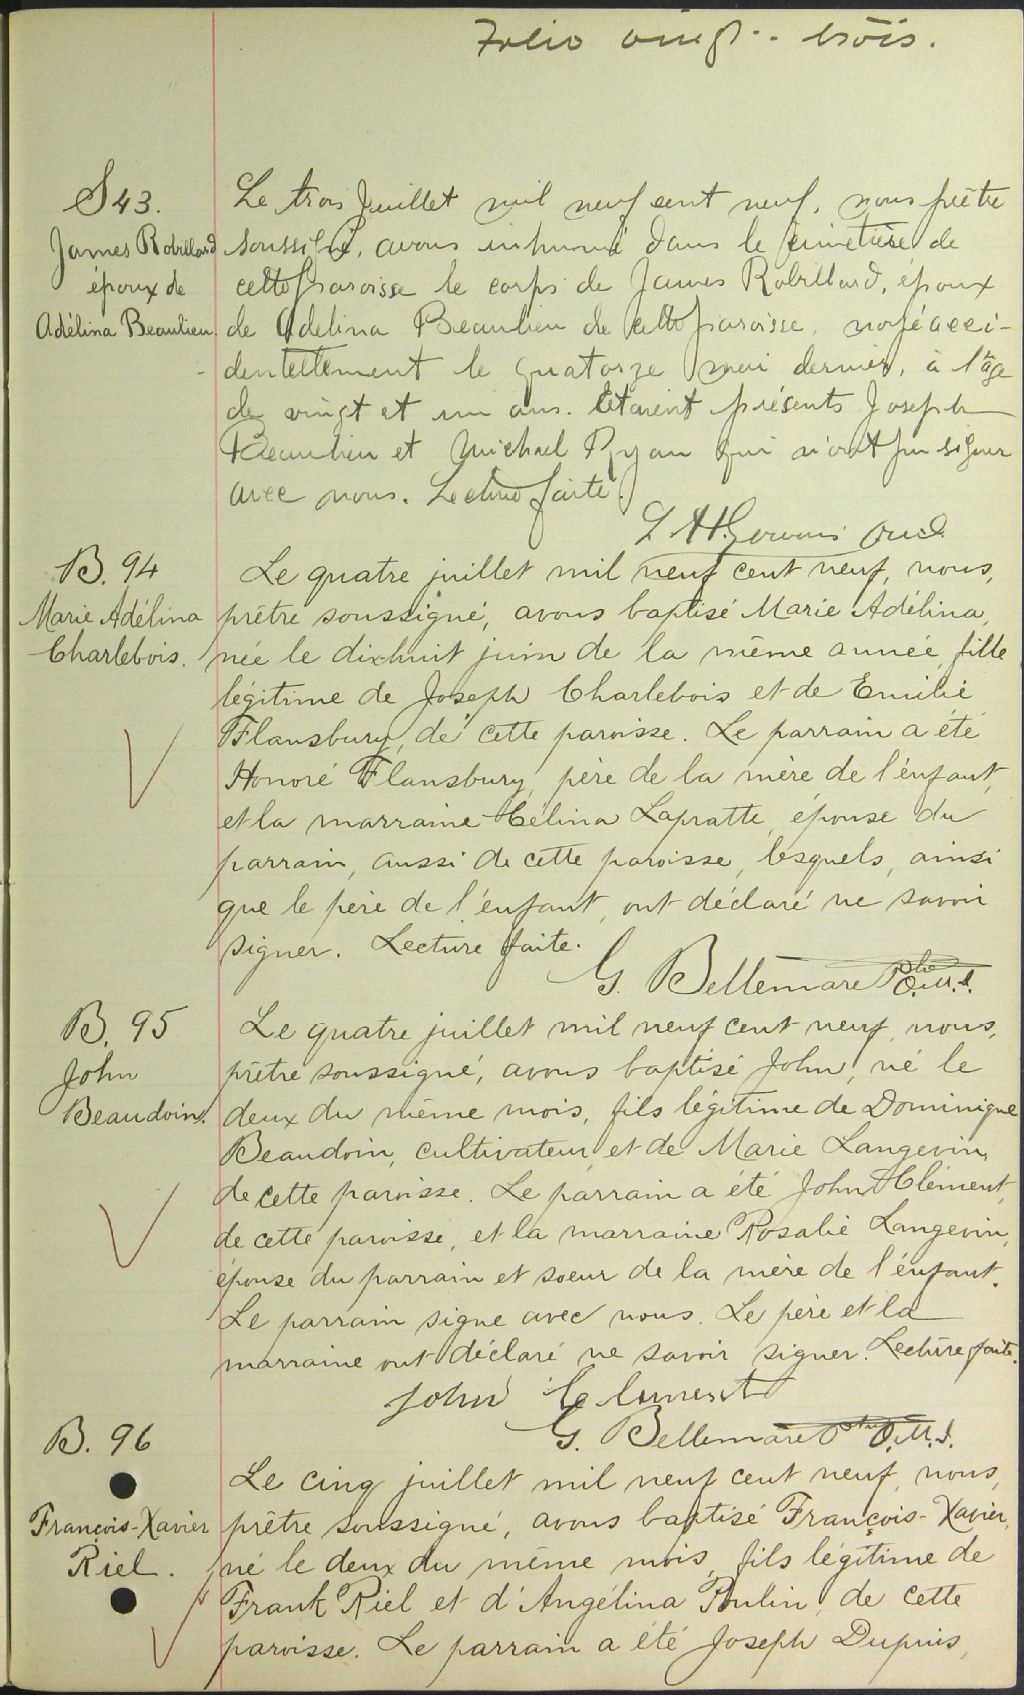 Folio vingt-trois.
S 43.
James Robillard
époux de
Adélina Beaulieu
Le trois Juillet mil neuf cent neuf, nous prêtre
soussigné, avons inhumé dans le cimetière de
cette paroisse le corps de James Robillard, époux
de Adelina Beaulieu de cette paroisse, noyé acci-
dentellement le quatorze mai dernier, à l'âge
de vingt et un ans. Etaient présents Joseph
Beaulieu et Michael Ryan qui n'ont pu signer
avec nous. Lecture faite.
Gervais
B. 94
Marie Adélina
Charlebois.
Le quatre juillet mil neuf cent neuf, nous,
prêtre soussigné, avons baptisé Marie Adélina,
née le dix-huit juin de la même année, fille
légitime de Joseph Charlebois et de Emilie
Flansbury, de cette paroisse. Le parrain a été
Honoré Flansbury, père de la mère de l'énfant,
et la marraine Célina Lapratte, épouse du
parrain, aussi de cette paroisse, lesquels, ainsi
que le père de l'énfant, ont déclaré ne savoir
signer. Lecture faite.
G. Bellemare Ptre O.M.I.
B. 95
John
Beaudoin.
Le quatre juillet mil neuf cent neuf, nous,
prêtre soussigné, avons baptisé John, né le
deux du même mois, fils légitime de Dominique
Beaudoin, cultivateur, et de Marie Langevin,
de cette paroisse. Le parrain a été John Clément,
de cette paroisse, et la marraine Rosalie Langevin,
épouse du parrain et soeur de la mère de l'énfant.
Le parrain signe avec nous. Le père et la
marraine ont déclaré ne savoir signer. Lecture faite.
John Clement
G. Bellemare Ptre O.M.I.
B. 96
François-Xavier
Riel.
Le cinq juillet mil neuf cent neuf, nous,
prêtre soussigné, avons baptisé François-Xavier,
né le deux du même mois, fils légitime de
Frank Riel et d'Angélina Poulin, de cette
paroisse. Le parrain a été Joseph Dupuis,